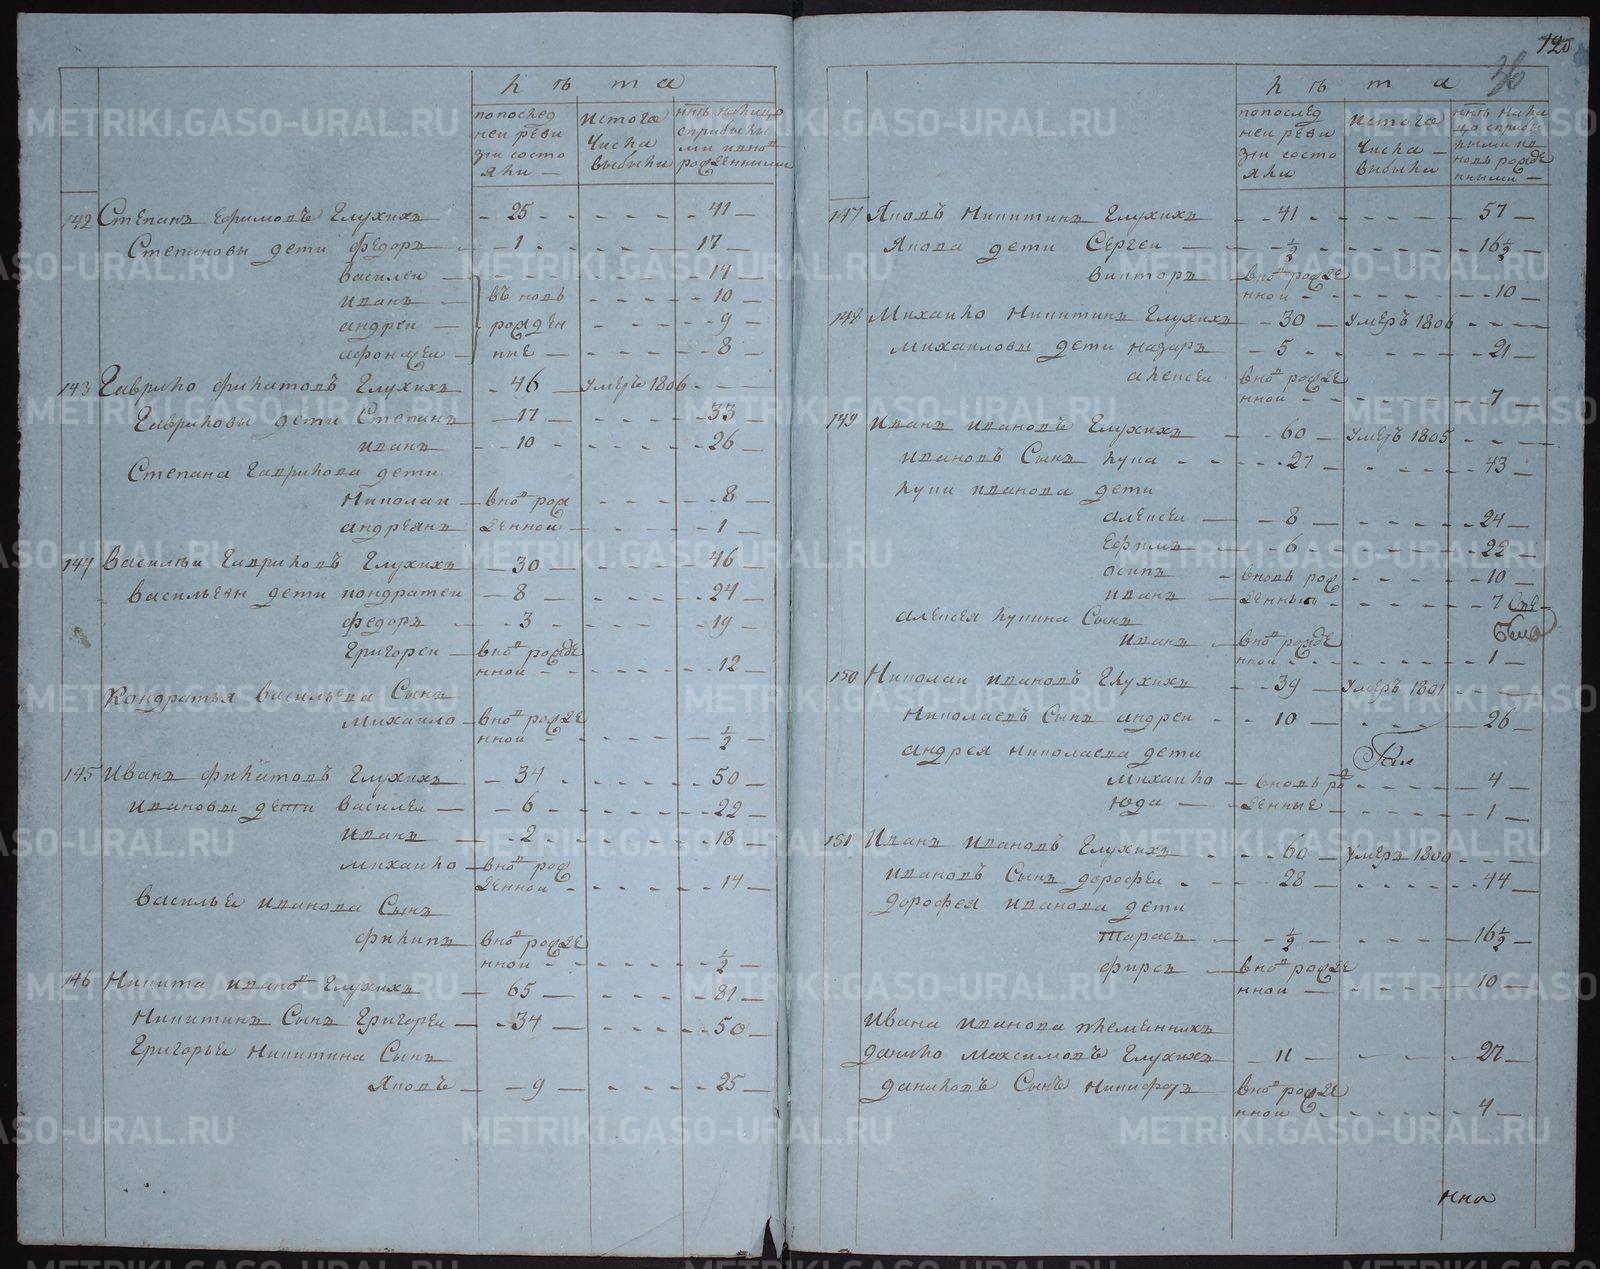 120
36
лѣта
по последней ревизии состояли —
из того числа выбыли
нынѣ на лицо с прибылыми и вновь рожденными
142 Степанъ Ефимовъ Глухихъ - 25 - - - - 41 —
Степановы дети федоръ - 1 - - - - 17 —
василеи — - - - - 14 —
иванъ — въновь - - - - 10 —
андреи — рожден - - - - 9 —
афонасеи — ные — - - - - 8 —
143 Гаврило филатовъ Глухихъ - 46 — умеръ 1806 - - - —
Гавриловы дети Степанъ — 17 — - - - - 33 —
иванъ - - 10 — - - - - 26 —
Степана Гаврилова дети
Николаи — вно в рож - - - - 8 —
андреянъ — денной — - - - - 1 —
144 Василеи Гавриловъ Глухихъ — 30 — - - - - 46 —
васильевы дети кондратеи — 8 — - - - - 24 —
федоръ — - 3 - - - - 19 —
Григореи — вно в рожде
нной - - - - - 12 —
Кондратья васильева Сынъ
михаило — вно в рожде
нной - - - - - 1/2 —
145 Иванъ филатовъ Глухихъ — 34 - - - - 50 —
ивановы дети василеи — — 6 - - - - 22 —
иванъ — - 2 - - - - 18 —
михаило — вно в рож
денной - - - - - 14 —
василья иванова Сынъ
филипъ вно в рожде
нной - - - - - 1/2 —
146 Никита ивано в Глухихъ — 65 — - - - - 81 —
Никитинъ Сынъ Григореи — - 34 — - - - - 50 —
Григорья Никитина Сынъ
Яковъ — — 9 — - - - - 25 —
лѣта
по последней ревизии состояли
из того числа — выбыли
нынѣ на лицо с прибылыми и вновь рожденными —
147 Яковъ Никитинъ Глухихъ - - 41 - - - - 57 —
Якова дети Сергеи — — 1/2 - - - - 16 1/2 —
викторъ вно в рожде
нной - - - - - 10 —
148 Михаило Никитинъ Глухихъ — 30 — умеръ 1806 - - - —
михаиловы дети назаръ — 5 - - - - - 21 —
алексеи вно в рожде
нной - - - - - 7 —
149 Иванъ ивановъ Глухихъ — - 60 — умеръ 1805 - - - —
ивановъ Сынъ лука - - - - 27 — - - - - 43 —
луки иванова дети
алексеи — — 8 — - - - - 24 —
Ефимъ — - 6 - - - - 22 —
осипъ - вновь рож - - - - 10 —
иванъ — денныя - - - - 7
алексея лукина Сынъ
иванъ — вно в рожде
нной - - - - - 1 —
150 Николаи ивановъ Глухихъ - - 39 — умеръ 1801 - - - —
Николаевъ Сынъ андреи - - 10 — - - - - 26 —
андрея николаева дети
михаило — вновь ро - - - - 4 —
юда — — денные — - - - - 1 —
151 Иванъ ивановъ Глухихъ - - - 60 — умеръ 1800 - - - —
ивановъ Сынъ дорофеи - - - 28 — - - - - 44 —
дорофея иванова дети
тарасъ — — 1/2 — - - - - 16 1/2 —
фирсъ — вно в рожде
нной — - - - - 10 —
Ивана иванова племянникъ
данило максимовъ Глухихъ — 11 — - - - 27 —
даниловъ Сынъ никифоръ вно в рожде
нной - - - - - 4 —